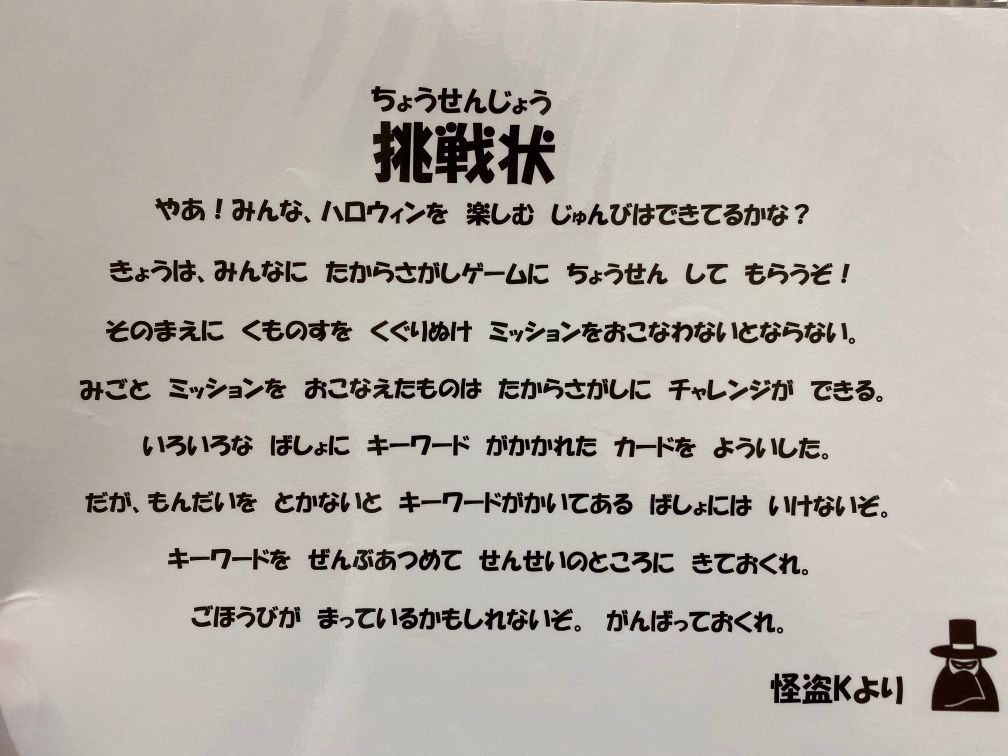 ちょうせんじょう
挑戦状
やあ！みんな、ハロウィンを 楽しむ じゅんびはできてるかな？
きょうは、みんなに たからさがしゲームに ちょうせん して もらうぞ！
そのまえに くものすを くぐりぬけ ミッションをおこなわないとならない。
みごと ミッションを おこなえたものは たからさがしに チャレンジが できる。
いろいろな ばしょに キーワード がかかれた カードを よういした。
だが、もんだいを とかないと キーワードがかいてある ばしょには いけないぞ。
キーワードを ぜんぶあつめて せんせいのところに きておくれ。
ごほうびが まっているかもしれないぞ。 がんばっておくれ。
怪盗Kより